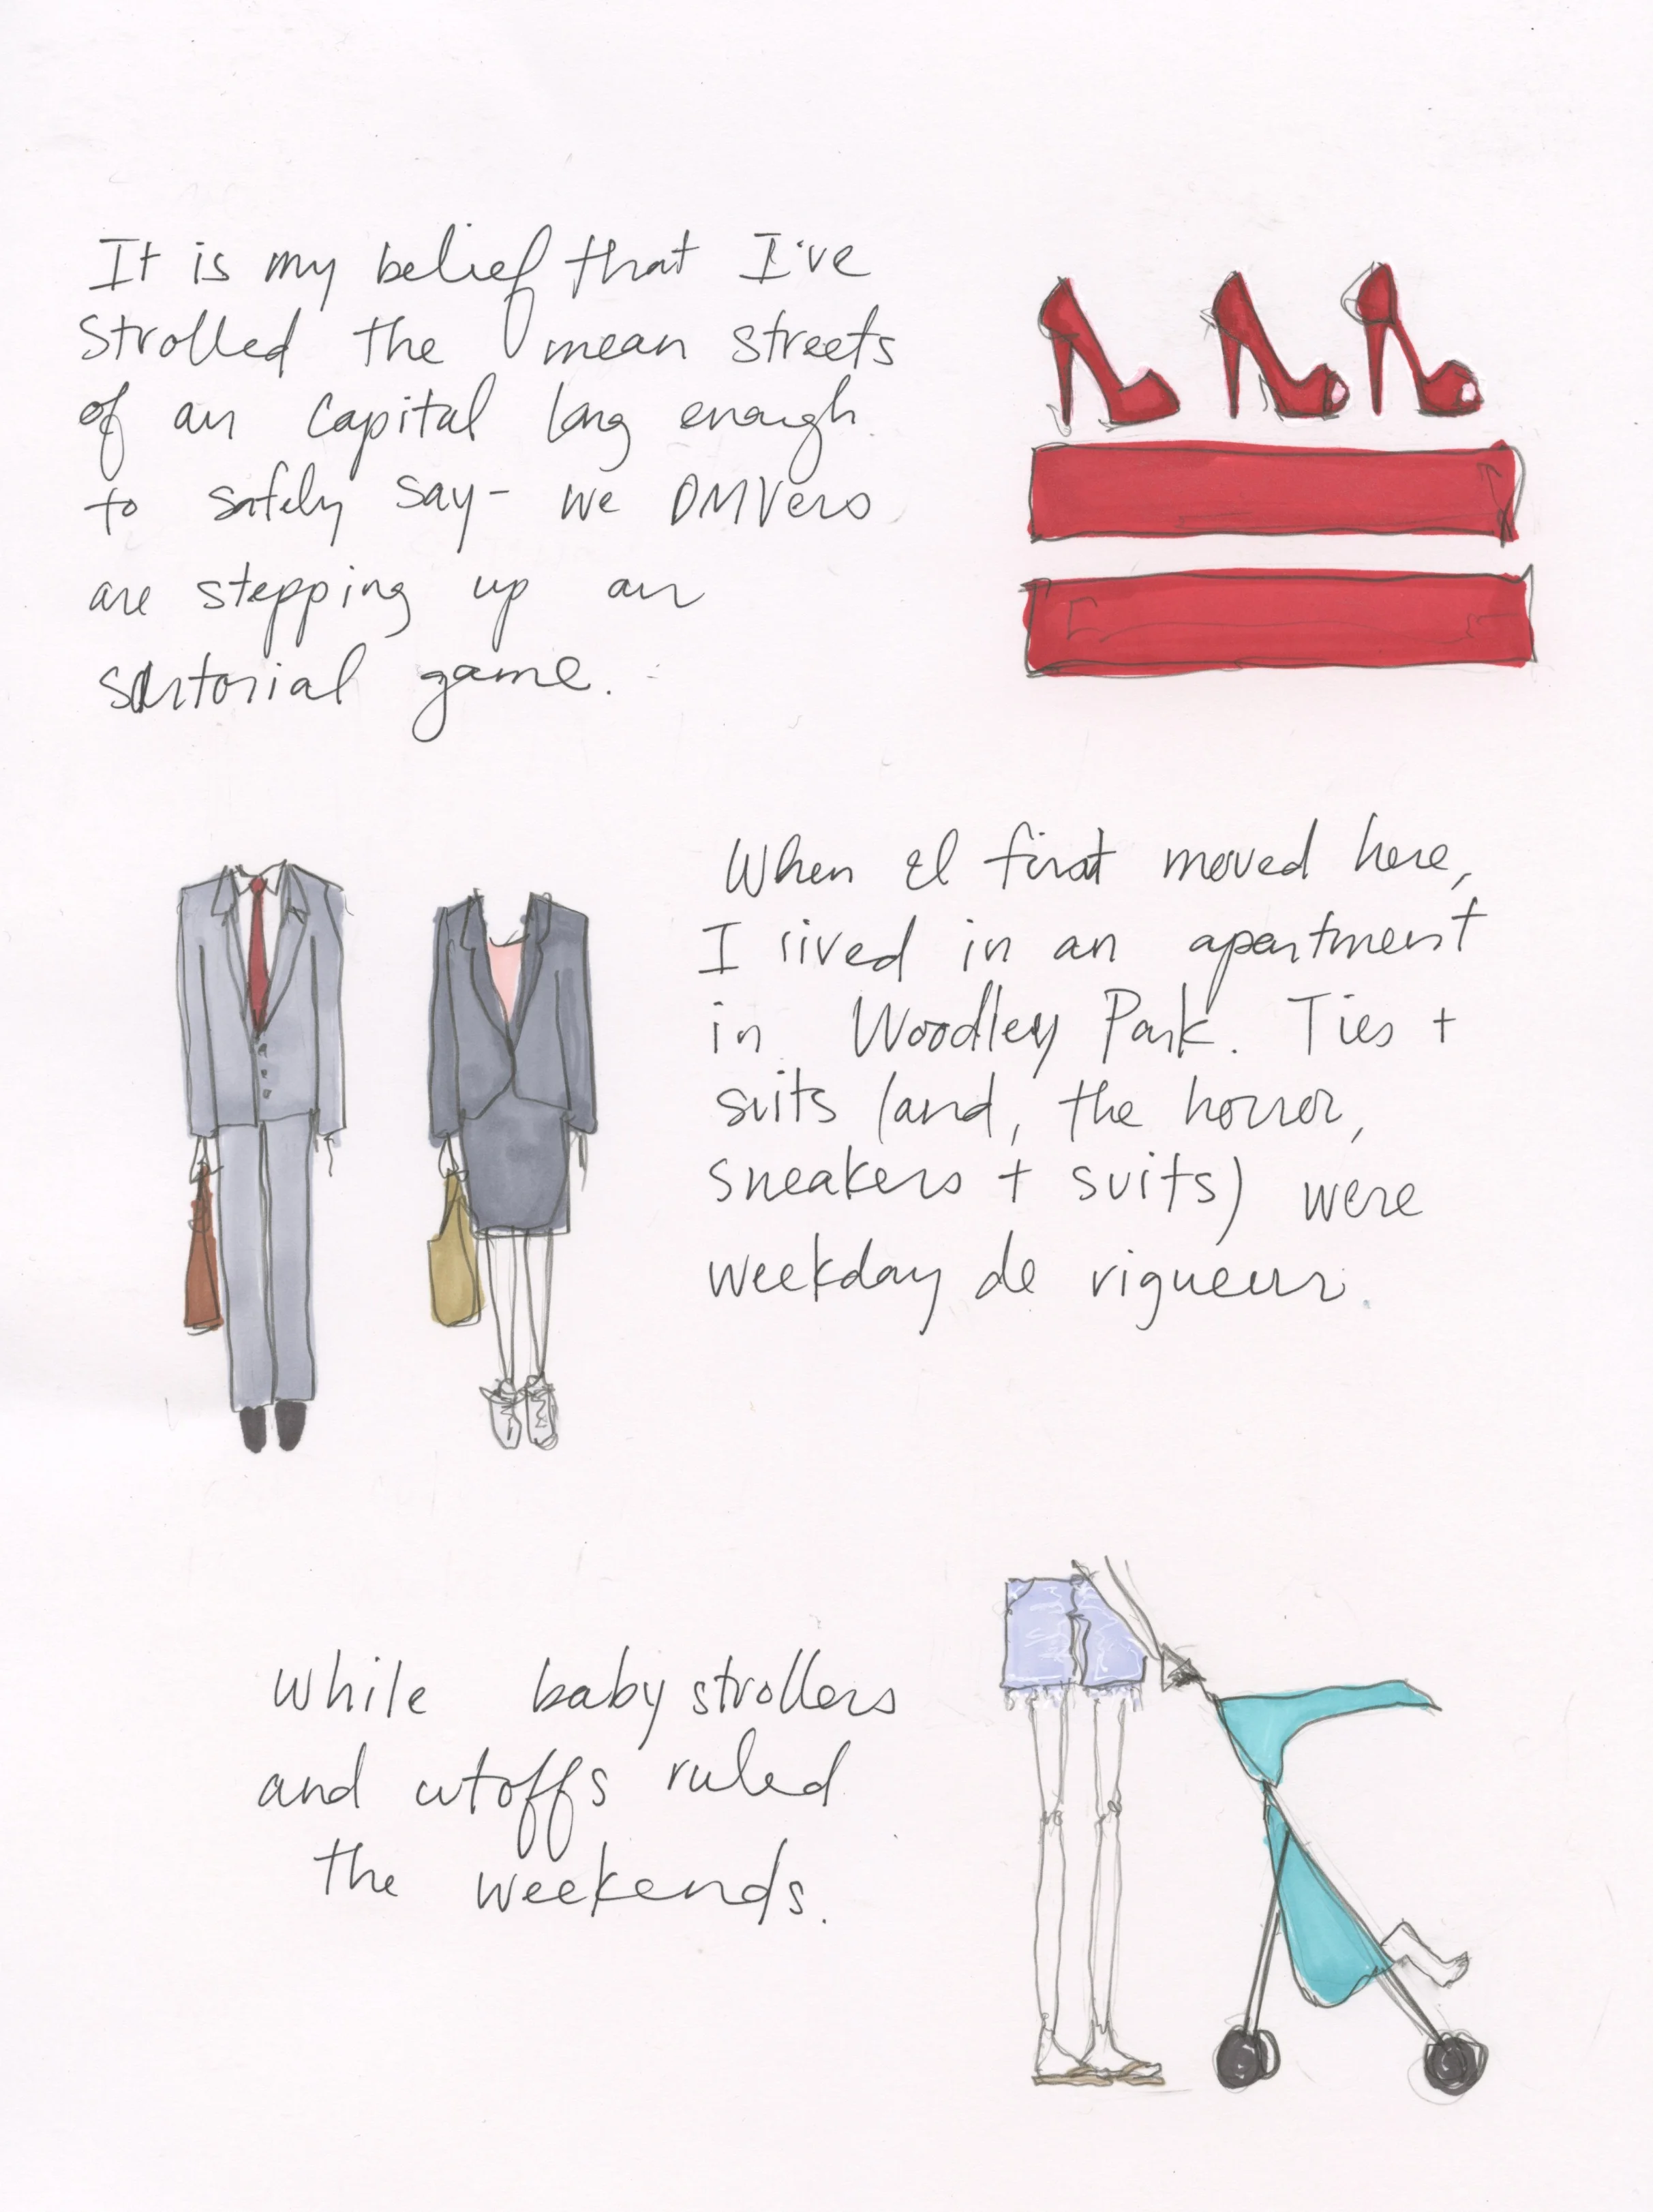 It is my belief that I've
strolled the mean streets
of our capital long enough
to safely say- we DMVers
are stepping up our
sartorial game.
When I first moved here,
I lived in an apartment
in Woodley Park. Ties +
suits (and, the horror,
sneakers + suits) were
weekday de rigueur.
While baby strollers
and cutoffs ruled
the weekends.